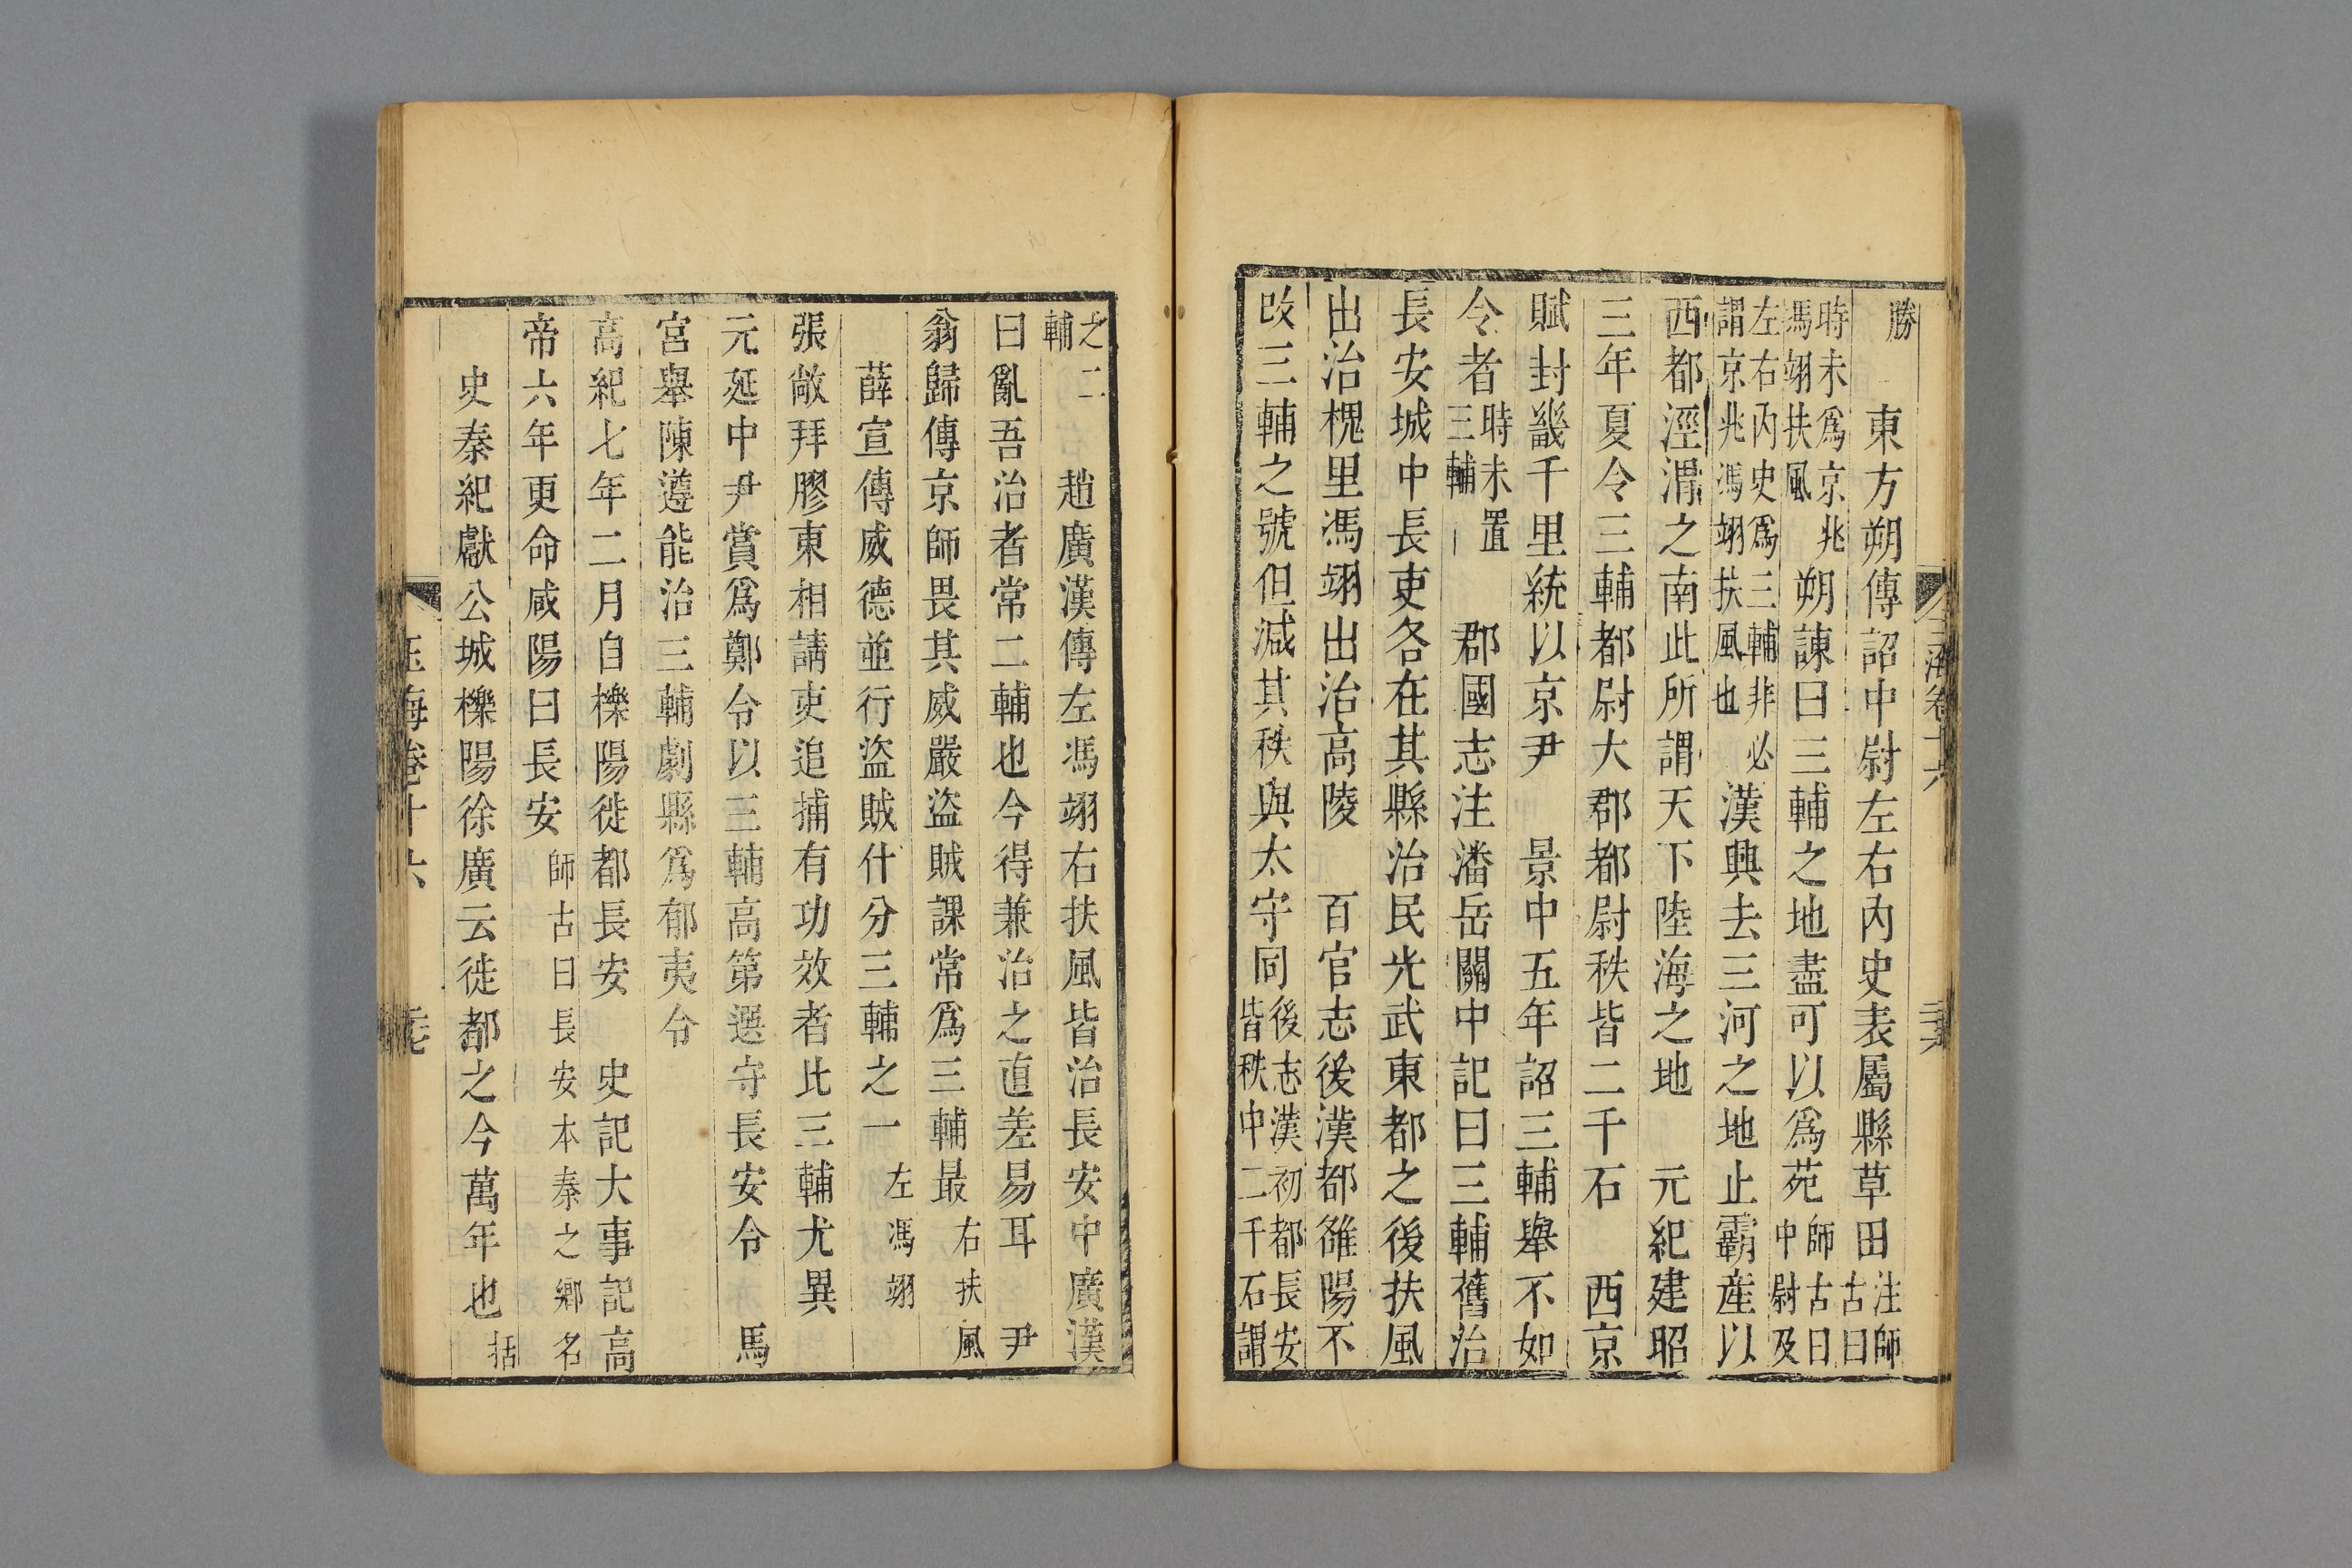 勝
東方朔傳詔中尉左右內史表屬縣草田注師古曰
時未爲京兆馮翊扶風朔諫曰三輔之地盡可以爲苑師古曰中尉及
左右內史爲三輔非必謂京兆馮翊扶風也漢興去三河之地止霸產以
西都涇渭之南此所謂天下陸海之地　元紀建昭
三年夏令三輔都尉大郡都尉秩皆二千石　西京
賦封畿千里統以京尹　景中五年詔三輔舉不如
令者時未置三輔　郡國志注潘岳關中記曰三輔舊治
長安城中長吏各在其縣治民光武東都之後扶風
出治槐里馮翊出治高陵　百官志後漢都雒陽不
改三輔之號但減其秩與太守同後志漢初都長安皆秩中二千石謂
玉海卷十六
之二輔　趙廣漢傳左馮翊右扶風皆治長安中廣漢
曰亂吾治者常二輔也今得兼治之直差易耳　尹
翁歸傳京師畏其威嚴盜賊課常爲三輔最右扶風
薛宣傳威德並行盜賊什分三輔之一左馮翊
張敞拜膠東相請吏追捕有功效者比三輔尤異
元延中尹賞爲鄭令以三輔高第選守長安令　馬
宮舉陳遵能治三輔劇縣爲郁夷令
高紀七年二月自櫟陽徙都長安　史記大事記高
帝六年更命咸陽曰長安師古曰長安本秦之鄉名
史秦紀獻公城櫟陽徐廣云徙都之今萬年也括
玉海卷十六